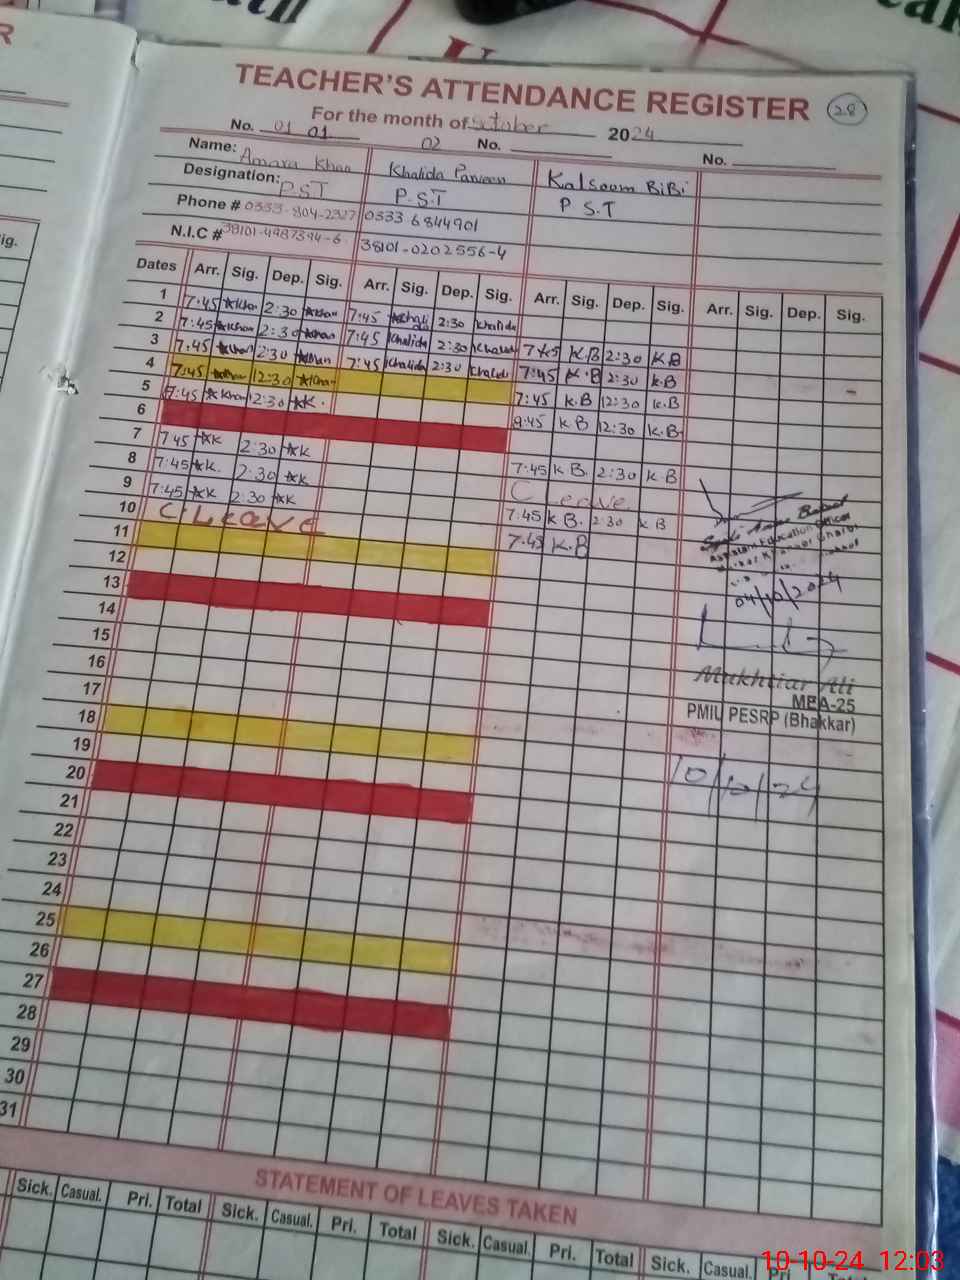 TEACHER'S ATTENDANCE REGISTER 28
For the month of October 2024
No. 01 01 02 No. No.
Name: Amara Khan Khalida Parveen Kalsoom BiBi
Designation: P.S.T P.S.T P S.T
Phone # 0333-804-2327 0333 6844901
N.I.C # 38101-4987394-6 38101-0202556-4
Dates Arr. Sig. Dep. Sig. Arr. Sig. Dep. Sig. Arr. Sig. Dep. Sig. Arr. Sig. Dep. Sig.
1 7:45 Khan 2:30 Khan 7:45 Khali da 2:30 Khalida
2 7:45 Khan 2:30 Khan 7:45 Khalida 2:30 Khalida 7:45 K.B 2:30 K B
3 7:45 Khan 2:30 Khan 7:45 Khalida 2:30 Khalida 7:45 K.B 2:30 K.B
4 7:45 Khan 12:30 Khan 7:45 K.B 12:30 K.B
5 7:45 Khan 12:30 K. 9:45 K.B 12:30 K.B
6
7 7 45 K 2:30 K 7:45 K B. 2:30 K.B
8 7:45 K. 2:30 K C Leave
9 7:45 K 2:30 K 7:45 K B. 2:30 K B
10 C. Leave 7:45 K.B
11
12
13
14
15
16
17
18
19
20
21
22
23
24
25
26
27
28
29
30
31
Assistant Education Officer
04/10/2024
Mukhtiar Ali
MEA-25
PMIU PESRP (Bhakkar)
10/10/24
STATEMENT OF LEAVES TAKEN
Sick. Casual. Pri. Total Sick. Casual. Pri. Total Sick. Casual. Pri. Total Sick. Casual.
10-10-24 12:03